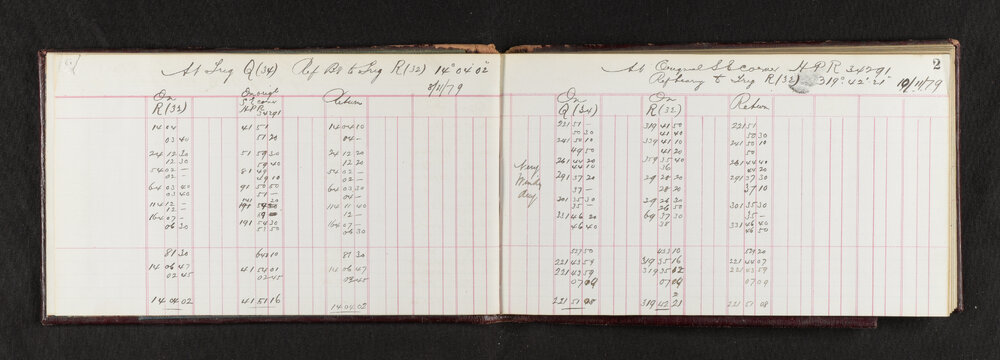 At Trig Q (34) Ref Bg to Trig R (32) 14° 04' 02"
8/11/79
On On orig'l Return
R (32) S E corner
H.P.R.
34291
14 04 41 51 14 04 10
03 40 51 20 04 —
24 12 30 51 59 30 24 12 20
12 30 59 40 12 20
54 02 — 81 49 54 02 —
02 — 49 10 02 —
64 03 40 91 50 50 64 03 30
03 40 51 — 04 —
114 12 — 114 11 40
12 — 12 —
164 07 — 191 54 30 164 07 —
06 30 06 30
81 30 81 30
14 06 47 41 54 01 14 06 47
02 45 02 45 02 45
14 04 02 41 51 16 14 04 02
2
At Original S.E. corner H.P.R 34291
Ref bearing to Trig R (32) 319° 42' 21"
10/11/79
On On Return
Q (34) R (32)
221 51 — 319 41 50 221 51
50 30 41 40 50 30
241 50 10 339 41 10 241 50 10
49 50 41 20 50
261 44 20 359 35 40 261 44 40
44 10 36 44 20
Very
Windy
day
291 37 20 29 28 20 291 37 30
37 — 28 20 37 10
301 35 30 39 26 30 301 35 30
35 — 26 50 35 —
331 46 20 69 37 30 331 46 40
46 40 38 46 50
221 43 59 319 35 16 221 44 07
221 43 59 319 35 02 221 43 59
07 09 07 09 07 09
221 51 08 319 42 21 221 51 08